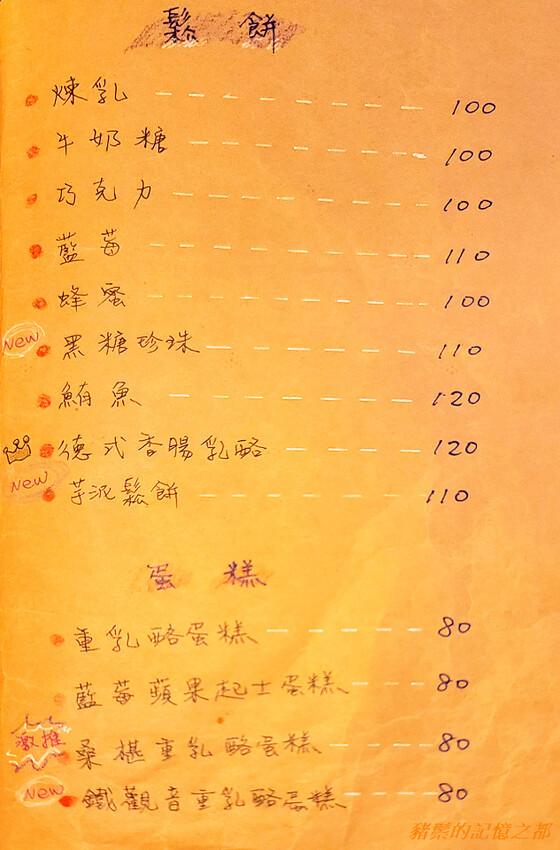 鬆餅
煉乳 100
牛奶糖 100
巧克力 100
藍莓 110
蜂蜜 100
New 黑糖珍珠 110
鮪魚 120
德式香腸乳酪 120
New 芋泥鬆餅 110
蛋糕
重乳酪蛋糕 80
藍莓蘋果起士蛋糕 80
激推 桑椹重乳酪蛋糕 80
New 鐵觀音重乳酪蛋糕 80
豬鬃的記憶之都